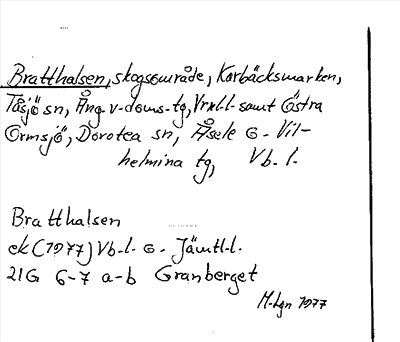 Bratthalsen, skogsområde, Korbäcksmarken,
Tåsjö sn, Ång. v-doms-tg, Vrnl-l samt Östra
Ormsjö, Dorotea sn, Åsele o. Vil-
helmina tg, Vb.l.
Bratthalsen
ek (1977) Vb-l. o. Jämtl-l.
21G 6-7 a-b Granberget
1977